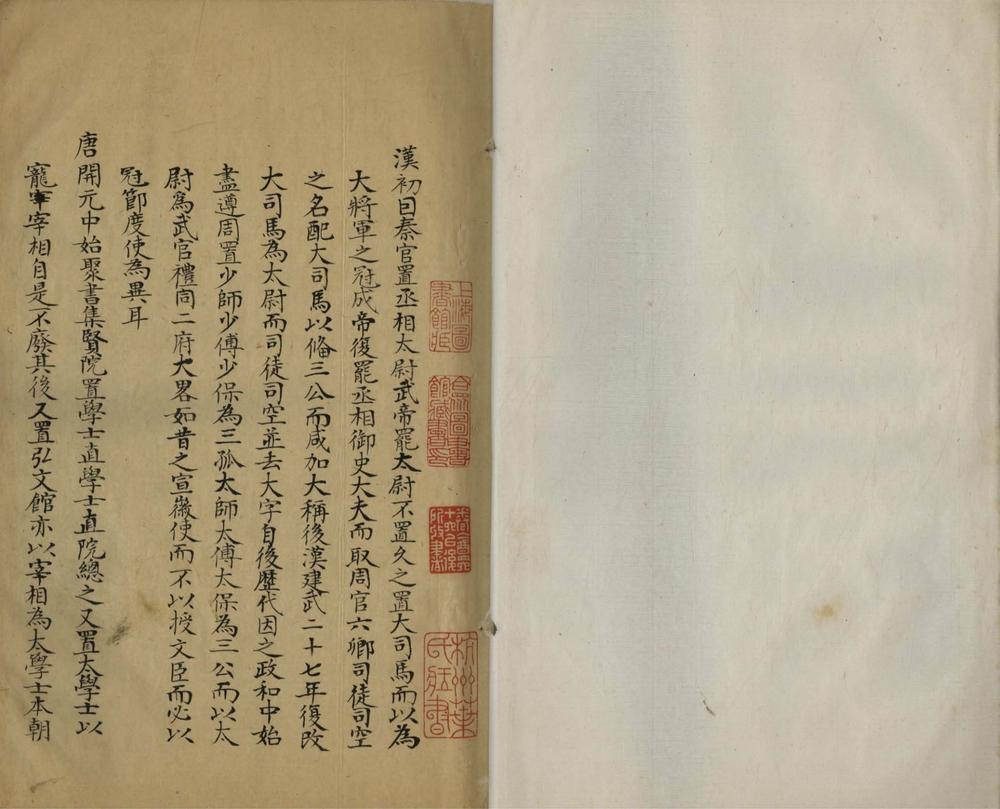 漢初因秦官置丞相太尉武帝罷太尉不置久之置大司馬而以為
大將軍之冠成帝復罷丞相御史大夫而取周官六卿司徒司空
之名配大司馬以俻三公而咸加大稱後漢建武二十七年復改
大司馬為太尉而司徒司空並去大字自後歷代因之政和中始
盡遵周置少師少傅少保為三孤太師太傅太保為三公而以太
尉為武官禮同二府大畧如昔之宣徽使而不以授文臣而必以
冠節度使為異耳
唐開元中始聚書集賢院置學士直學士直院總之又置太學士以
寵宰宰相自是不廢其後又置弘文館亦以宰相為太學士本朝
上海圖書館藏
合眾圖書館藏書印
杭州葉氏藏書